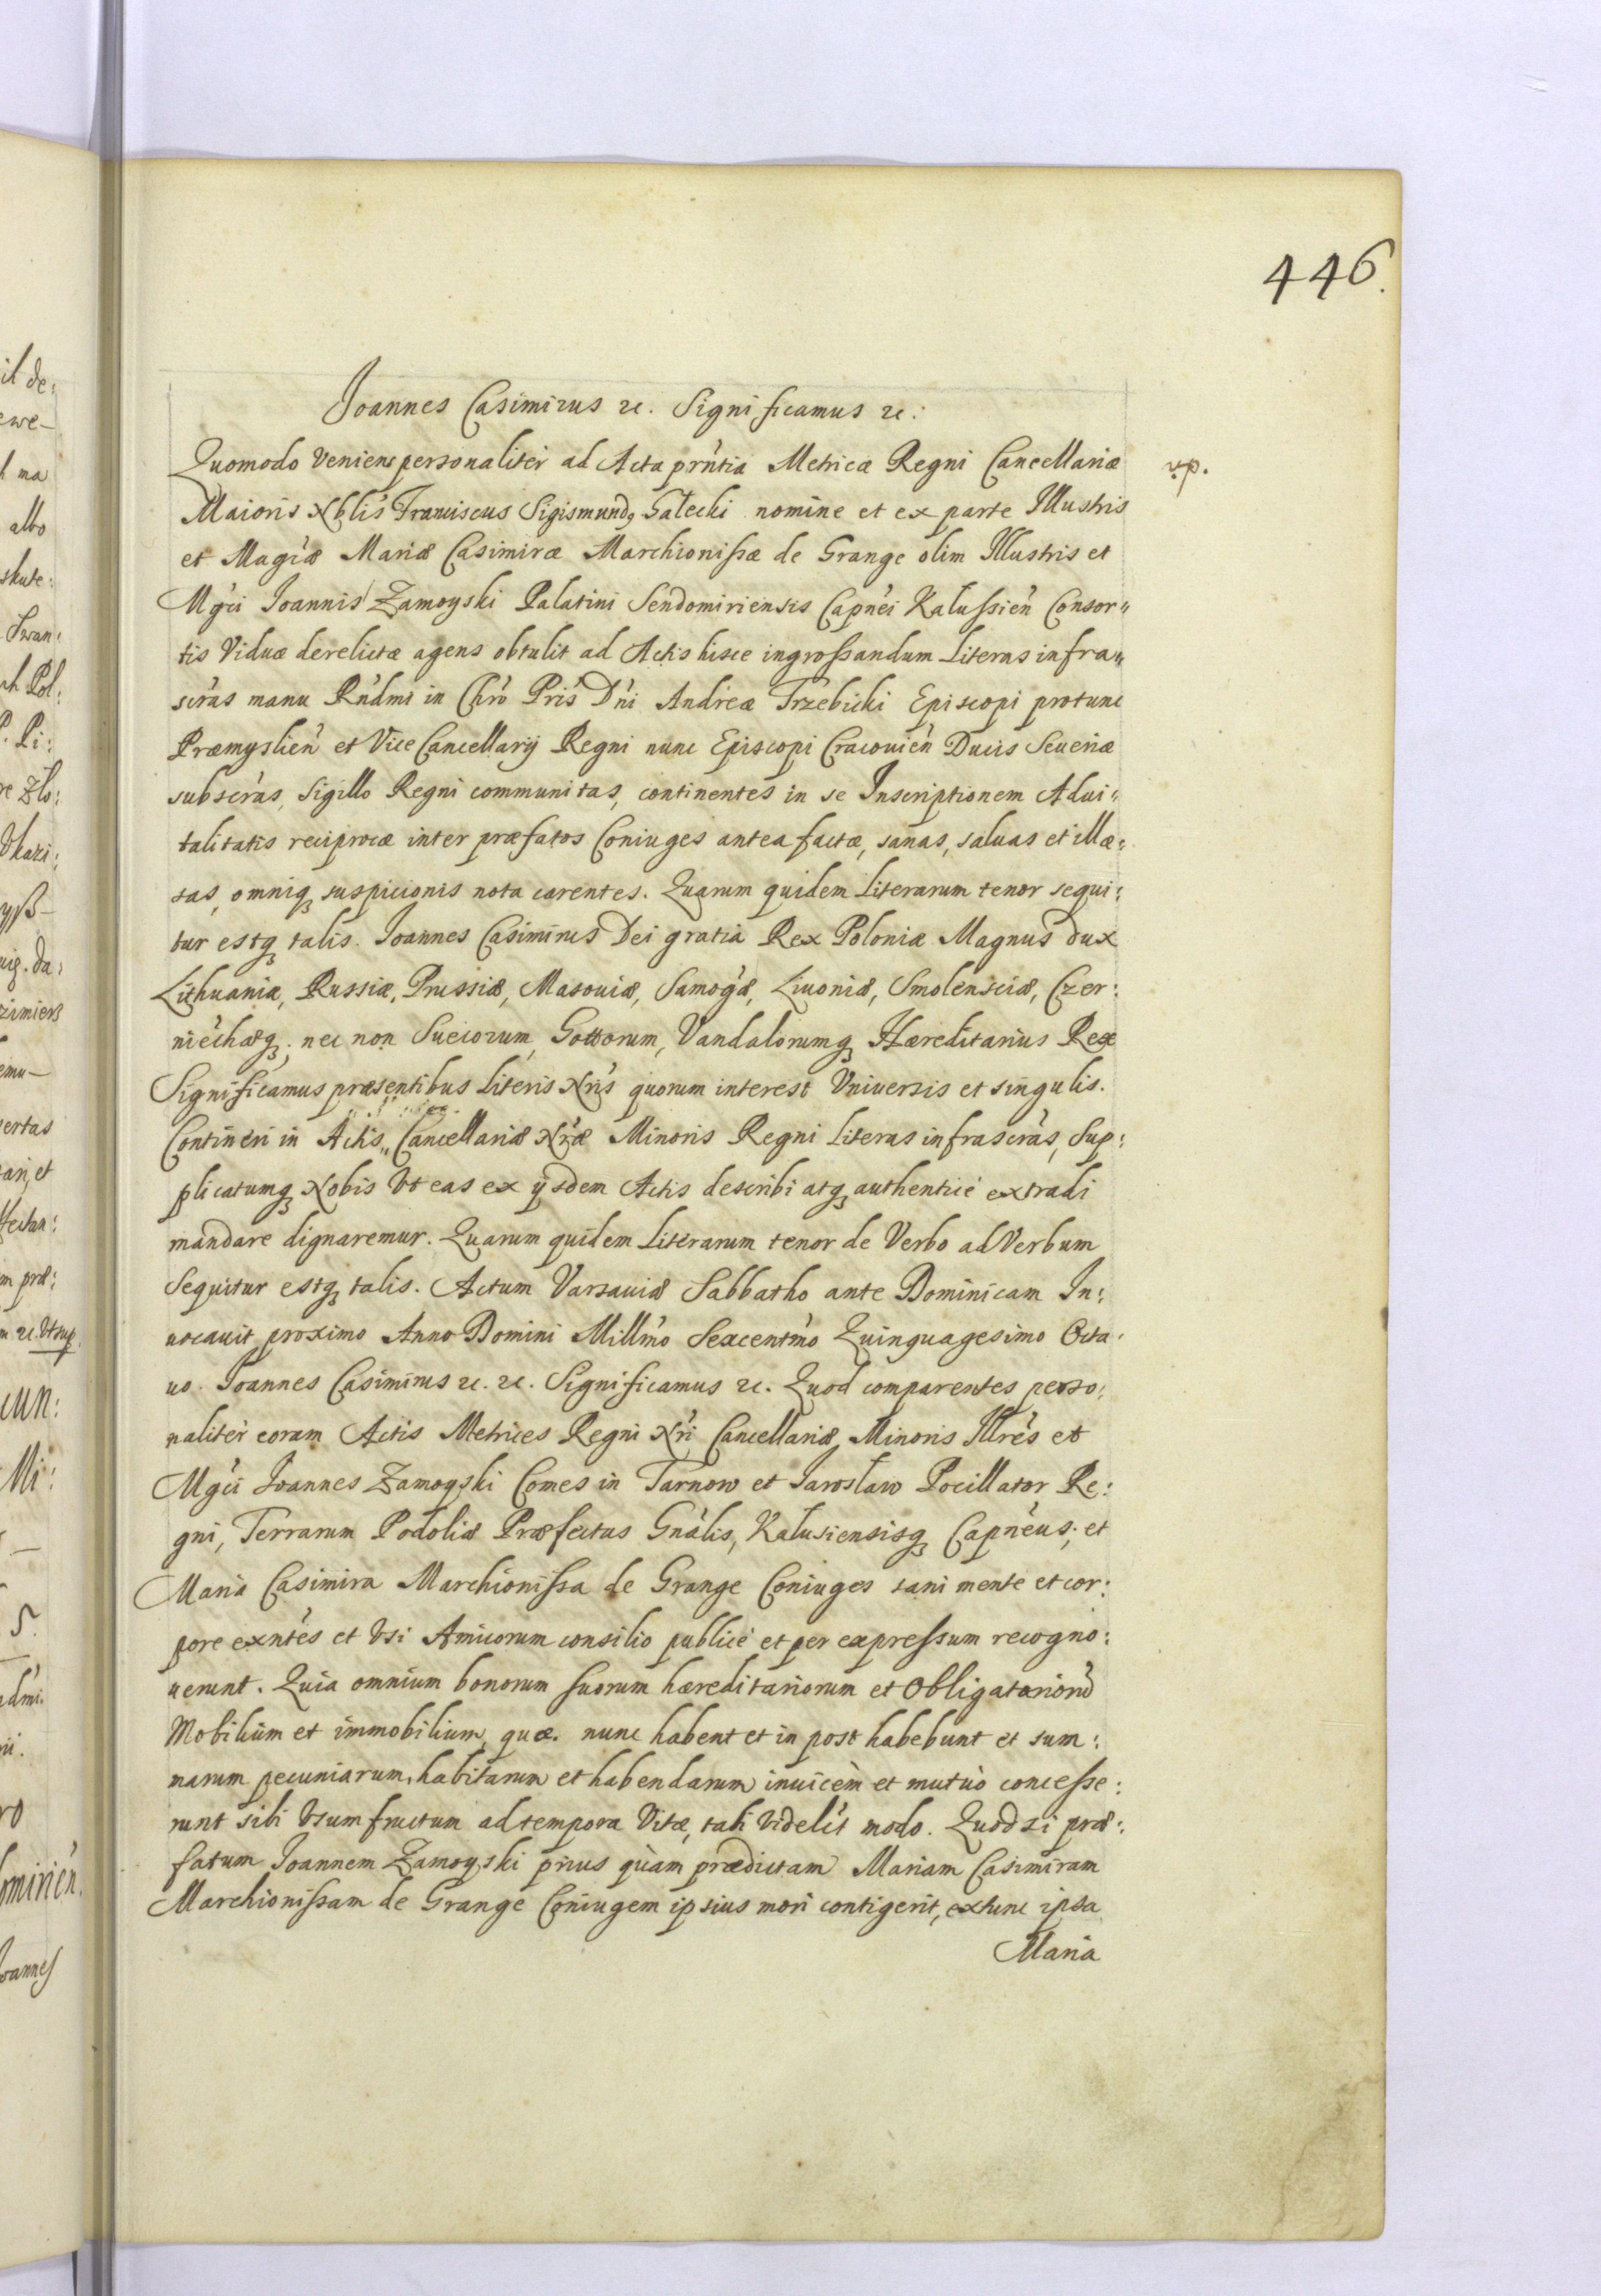 446.
Joannes Casimirus etc. Significamus etc:
Quomodo veniens personaliter ad Acta pr͂ntia Metricæ Regni Cancellariæ
v.p.
Maioris Nblis Franciscus Sigismundꝯ Gałecki nomine et ex parte Illustris
et Magcæ Mariæ Casimiræ Marchionissæ de Grange olim Illustris et
Mgci Joannis Zamoyski Palatini Sendomiriensis Capnei Kałussien Consor„
tis Viduæ derelictæ agens obtulit ad Actis hisce ingrossandum Literas infra„
scras manu Rndmi in Chro Pris Dni Andreæ Trzebicki Episcopi protunc
Præmyslien et Vice Cancellarij Regni nunc Episcopi Cracouien Ducis Seueriæ
subscras, Sigillo Regni communitas, continentes in se Inscriptionem Adui„
talitatis reciprocæ inter præfatos Coniuges antea factæ, sanas, saluas et illæ:
sas, omniqꝫ suspicionis nota carentes. Quarum quidem Literarum tenor sequi:
tur estqꝫ talis. Joannes Casimirus Dei gratia Rex Poloniæ Magnus Dux
Lithuaniæ, Russiæ, Prussiæ, Masouiæ, Samogæ, Liuoniæ, Smolensciæ, Czer:
niechæqꝫ; nec non Suecorum, Gottorum, Vandalorumqꝫ Hæreditarius Rex
Significamus præsentibus Literis Nris quorum interest Vniuersis et singulis.
Contineri in Actis „ Cancellariæ Nræ Minoris Regni Literas infrascras, Sup:
plicatumqꝫ Nobis Vt eas ex ijsdem Actis describi atqꝫ authentice extradi
mandare dignaremur. Quarum quidem Literarum tenor de Verbo ad Verbum
Sequitur estqꝫ talis. Actum Varsauiæ Sabbatho ante Dominicam In:
uocauit proximo Anno Domini Millmo Sexcentmo Quinquagesimo Octa:
uo. Joannes Casimirus etc. etc. Significamus etc. Quod comparentes perso:
naliter coram Actis Metrices Regni Nri Cancellariæ Minoris Illres et
Mgci Joannes Zamoyski Comes in Tarnow et Jarosław Pocillator Re:
gni, Terrarum Podoliæ Præfectus Gnalis, Kałusiensisqꝫ Capneus; et
Maria Casimira Marchionissa de Grange Coniuges sani mente et cor:
pore exntes et Vsi Amicorum consilio publice et per expressum recogno:
uerunt. Quia omnium bonorum suorum hæreditariorum et Obligatoriorū
Mobilium et immobilium, quæ. nunc habent et in post habebunt et sum:
marum pecuniarum, habitarum et habendarum inuicèm et mutuò concesse:
runt sibi Vsumfructum ad tempora Vitæ, tali videlit modo. Quòd si præ:
fatum Joannem Zamoyski prius quàm prædictam Mariam Casimiram
Marchionissam de Grange Coniugem ipsius mori contigerit, extunc ipsa
Maria